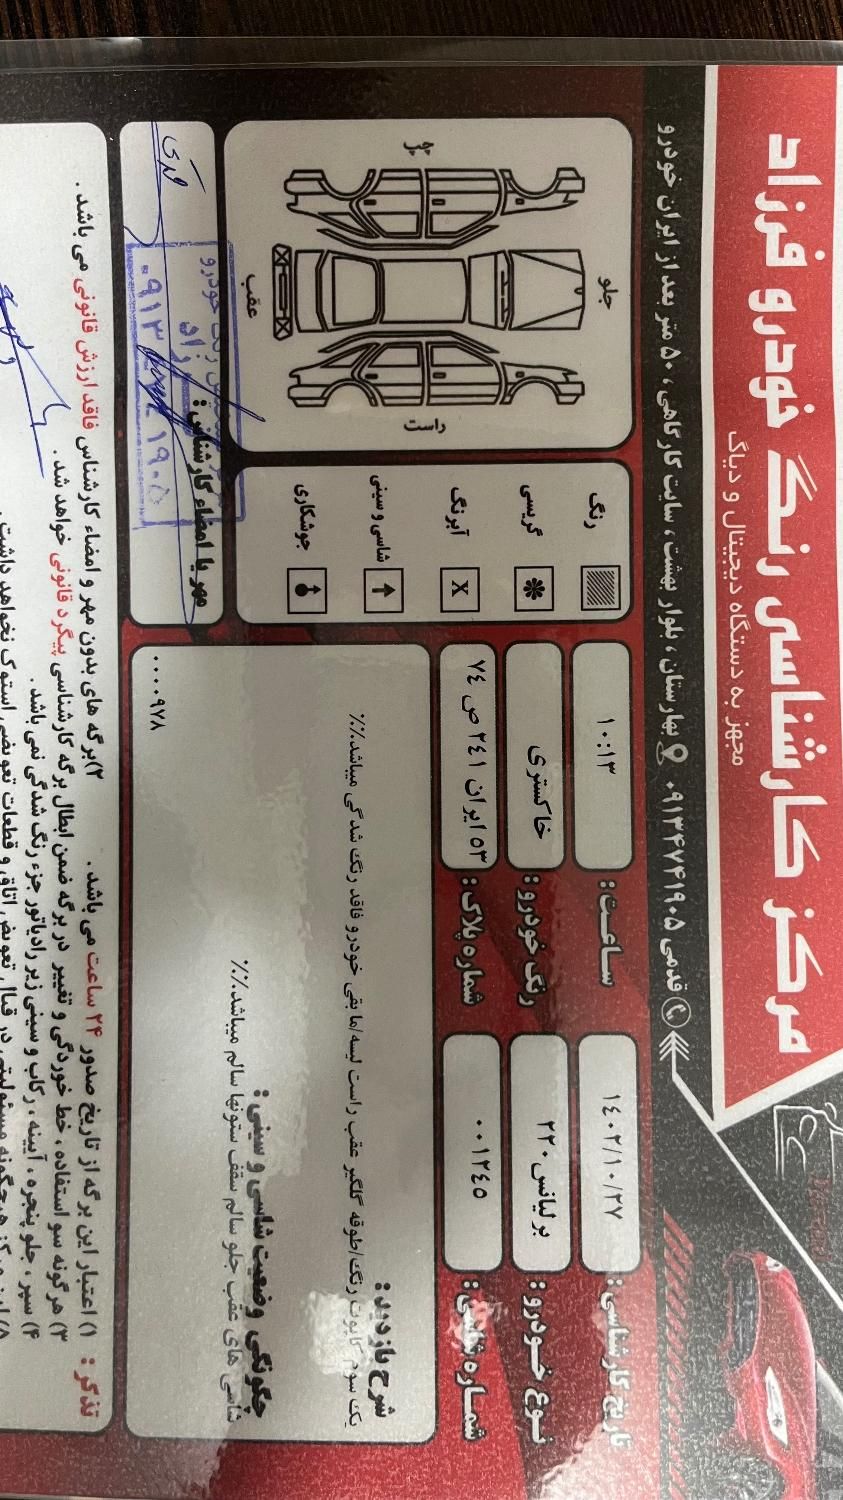 مرکز کارشناسی رنگ خودرو فرزاد
مجهز به دستگاه دیجیتال و دیاگ
قدمی ۰۹۱۳۴۷۴۱۹۰۵ بهارستان ، بلوار بهشت ، سایت کارگاهی ، ۵۰ متر بعد از ایران خودرو
تاریخ کارشناسی : ۱۴۰۲/۱۰/۲۷
ساعت : ۱۰:۱۳
نوع خودرو : برلیانس ۲۲۰
رنگ خودرو : خاکستری
شماره شاسی : ۰۰۱۲۴۵
شماره پلاک : ۵۳ ایران ۲۴۱ ص ۷۴
رنگ
گریسی
آبرنگ
X
شاسی و سینی
جوشکاری
جلو
چپ
راست
عقب
شرح بازدید :
یک سوم کاپوت رنگ/طوقه گلگیر عقب راست لیسه/مابقی خودرو فاقد رنگ شدگی میباشد.٪٪
چگونگی وضعیت شاسی و سینی :
شاسی های عقب جلو سالم سقف ستونها سالم میباشد.٪٪
۰۰۰۰۹۷۸
مهر یا امضاء کارشناس :
تذکر : ۱) اعتبار این برگه از تاریخ صدور ۲۴ ساعت می باشد . ۲)برگه های بدون مهر و امضاء کارشناس فاقد ارزش قانونی می باشد .
۳) هرگونه سو استفاده ، خط خوردگی و تغییر در برگه ضمن ابطال برگه کارشناسی پیگرد قانونی خواهد شد .
۴) سپر ، جلو پنجره ، آیینه ، رکاب و سینی زیر رادیاتور جزء رنگ شدگی نمی باشد .